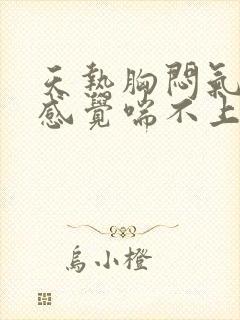 天熱胸悶氣
感覺喘不上
烏小橙